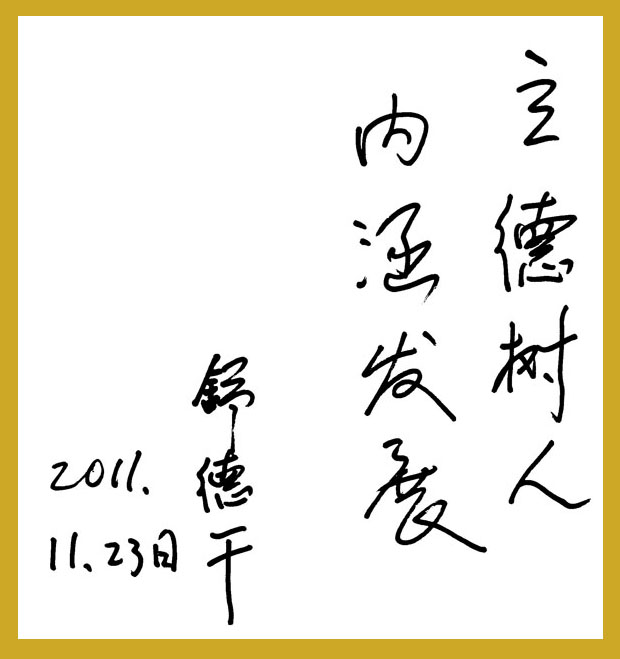 立德树人
内涵发展
舒德干
2011.
11.23日